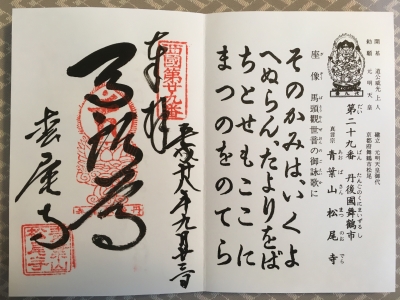 開基 道公威光上人
勅願 元明天皇
第二十九番 丹後國舞鶴市
青葉山 松尾寺
座像馬頭觀世音の御詠歌に
そのかみは、いくよ
へぬらん、たよりをば
ちとせもここに
まつのをのてら
奉拝
西國第廿九番
平成廿八年九月三日
馬頭尊
松尾寺